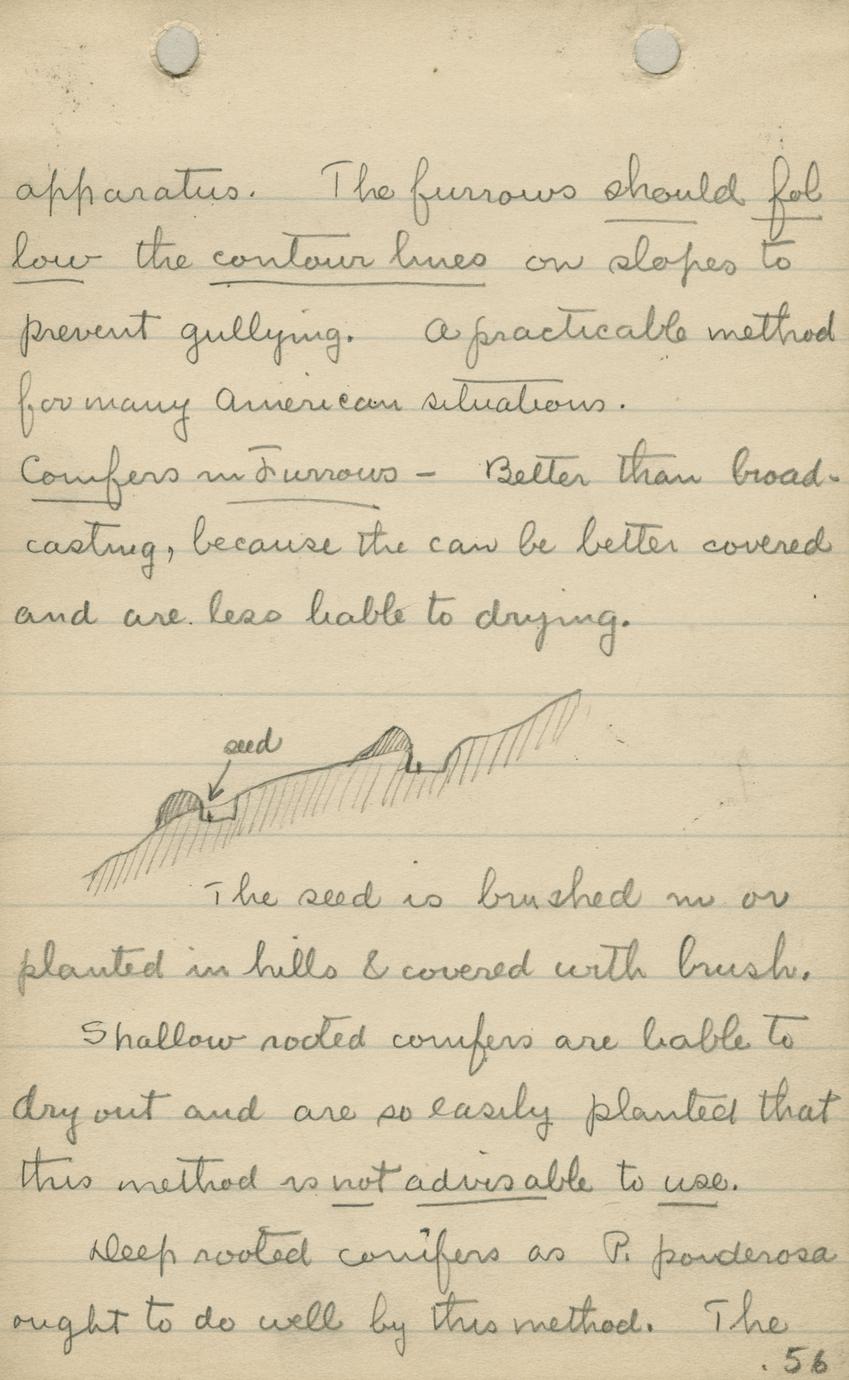 apparatus. The furrows should fol
low the contour lines on slopes to
prevent gullying. A practicable method
for many American situations.
Conifers in Furrows – Better than broad-
casting, because the can be better covered
and are less liable to drying.
seed
The seed is brushed in or
planted in hills & covered with brush.
Shallow rooted conifers are liable to
dry out and are so easily planted that
this method is not advisable to use.
Deep rooted conifers as P. ponderosa
ought to do well by this method. The
.56